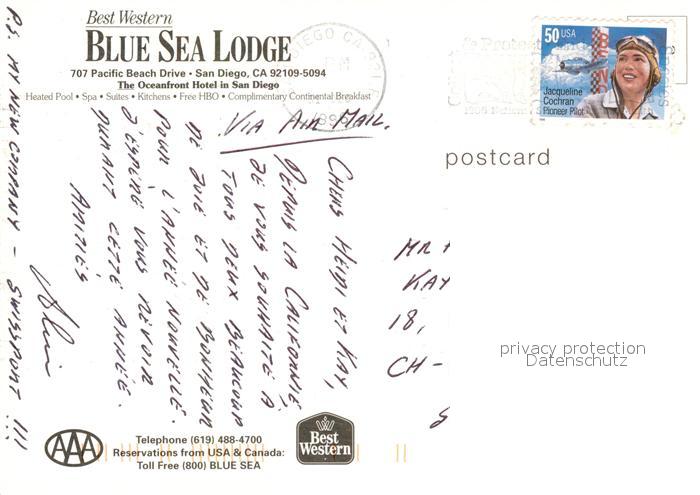 Best Western
BLUE SEA LODGE
707 Pacific Beach Drive • San Diego, CA 92109-5094
The Oceanfront Hotel in San Diego
Heated Pool • Spa • Suites • Kitchens • Free HBO • Complimentary Continental Breakfast
50 USA
Jacqueline
Cochran
Pioneer Pilot
postcard
VIA AIR MAIL.
CHERS HEIDI ET KAY,
DEPUIS LA CALIFORNIE
JE VOUS SOUHAITE À
TOUS DEUX BEAUCOUP
DE JOIE ET DE BONHEUR
POUR L'ANNÉE NOUVELLE.
J'ESPÈRE VOUS REVOIR
DURANT CETTE ANNÉE.
AMITIÉS
P.S. MY NEW COMPANY - SWISSPORT !!!
MR
KAY
18,
CH-
privacy protection
Datenschutz
AAA
Telephone (619) 488-4700
Reservations from USA & Canada:
Toll Free (800) BLUE SEA
Best
Western